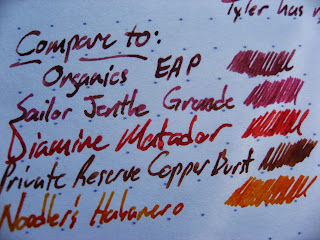 Tyler has
Compare to:
Organics EAP
Sailor Jentle Grenade
Diamine Matador
Private Reserve Copper Burst
Noodler's Habanero